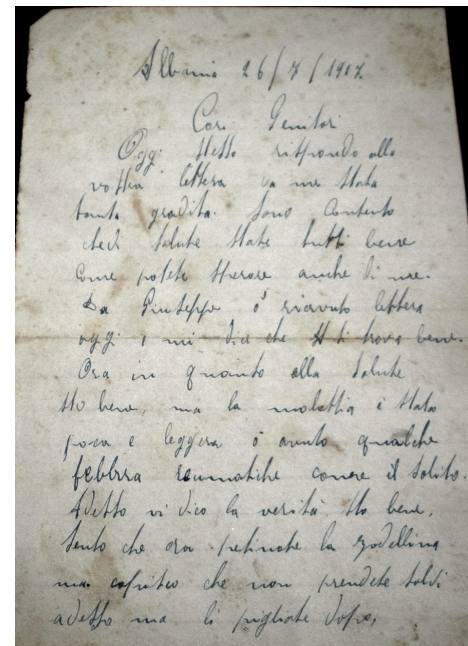 Albania 26/7/1917
Cari Genitori
Oggi stesso rispondo alla
vostra lettera da me stata
tanta gradita. Sono contento
che di salute state tutti bene
come potete sperare anche di me.
Da Giuseppe ò ricevuto lettera
oggi e mi dice che si trova bene.
Ora in quanto alla salute
sto bene, ma la malattia è stata
poca e leggera ò avuto qualche
febbra reumatiche come il solito.
Adesso vi dico la verità sto bene,
Sento che ora la
ma capisco che non prendete soldi
adesso ma li pigliate dopo,